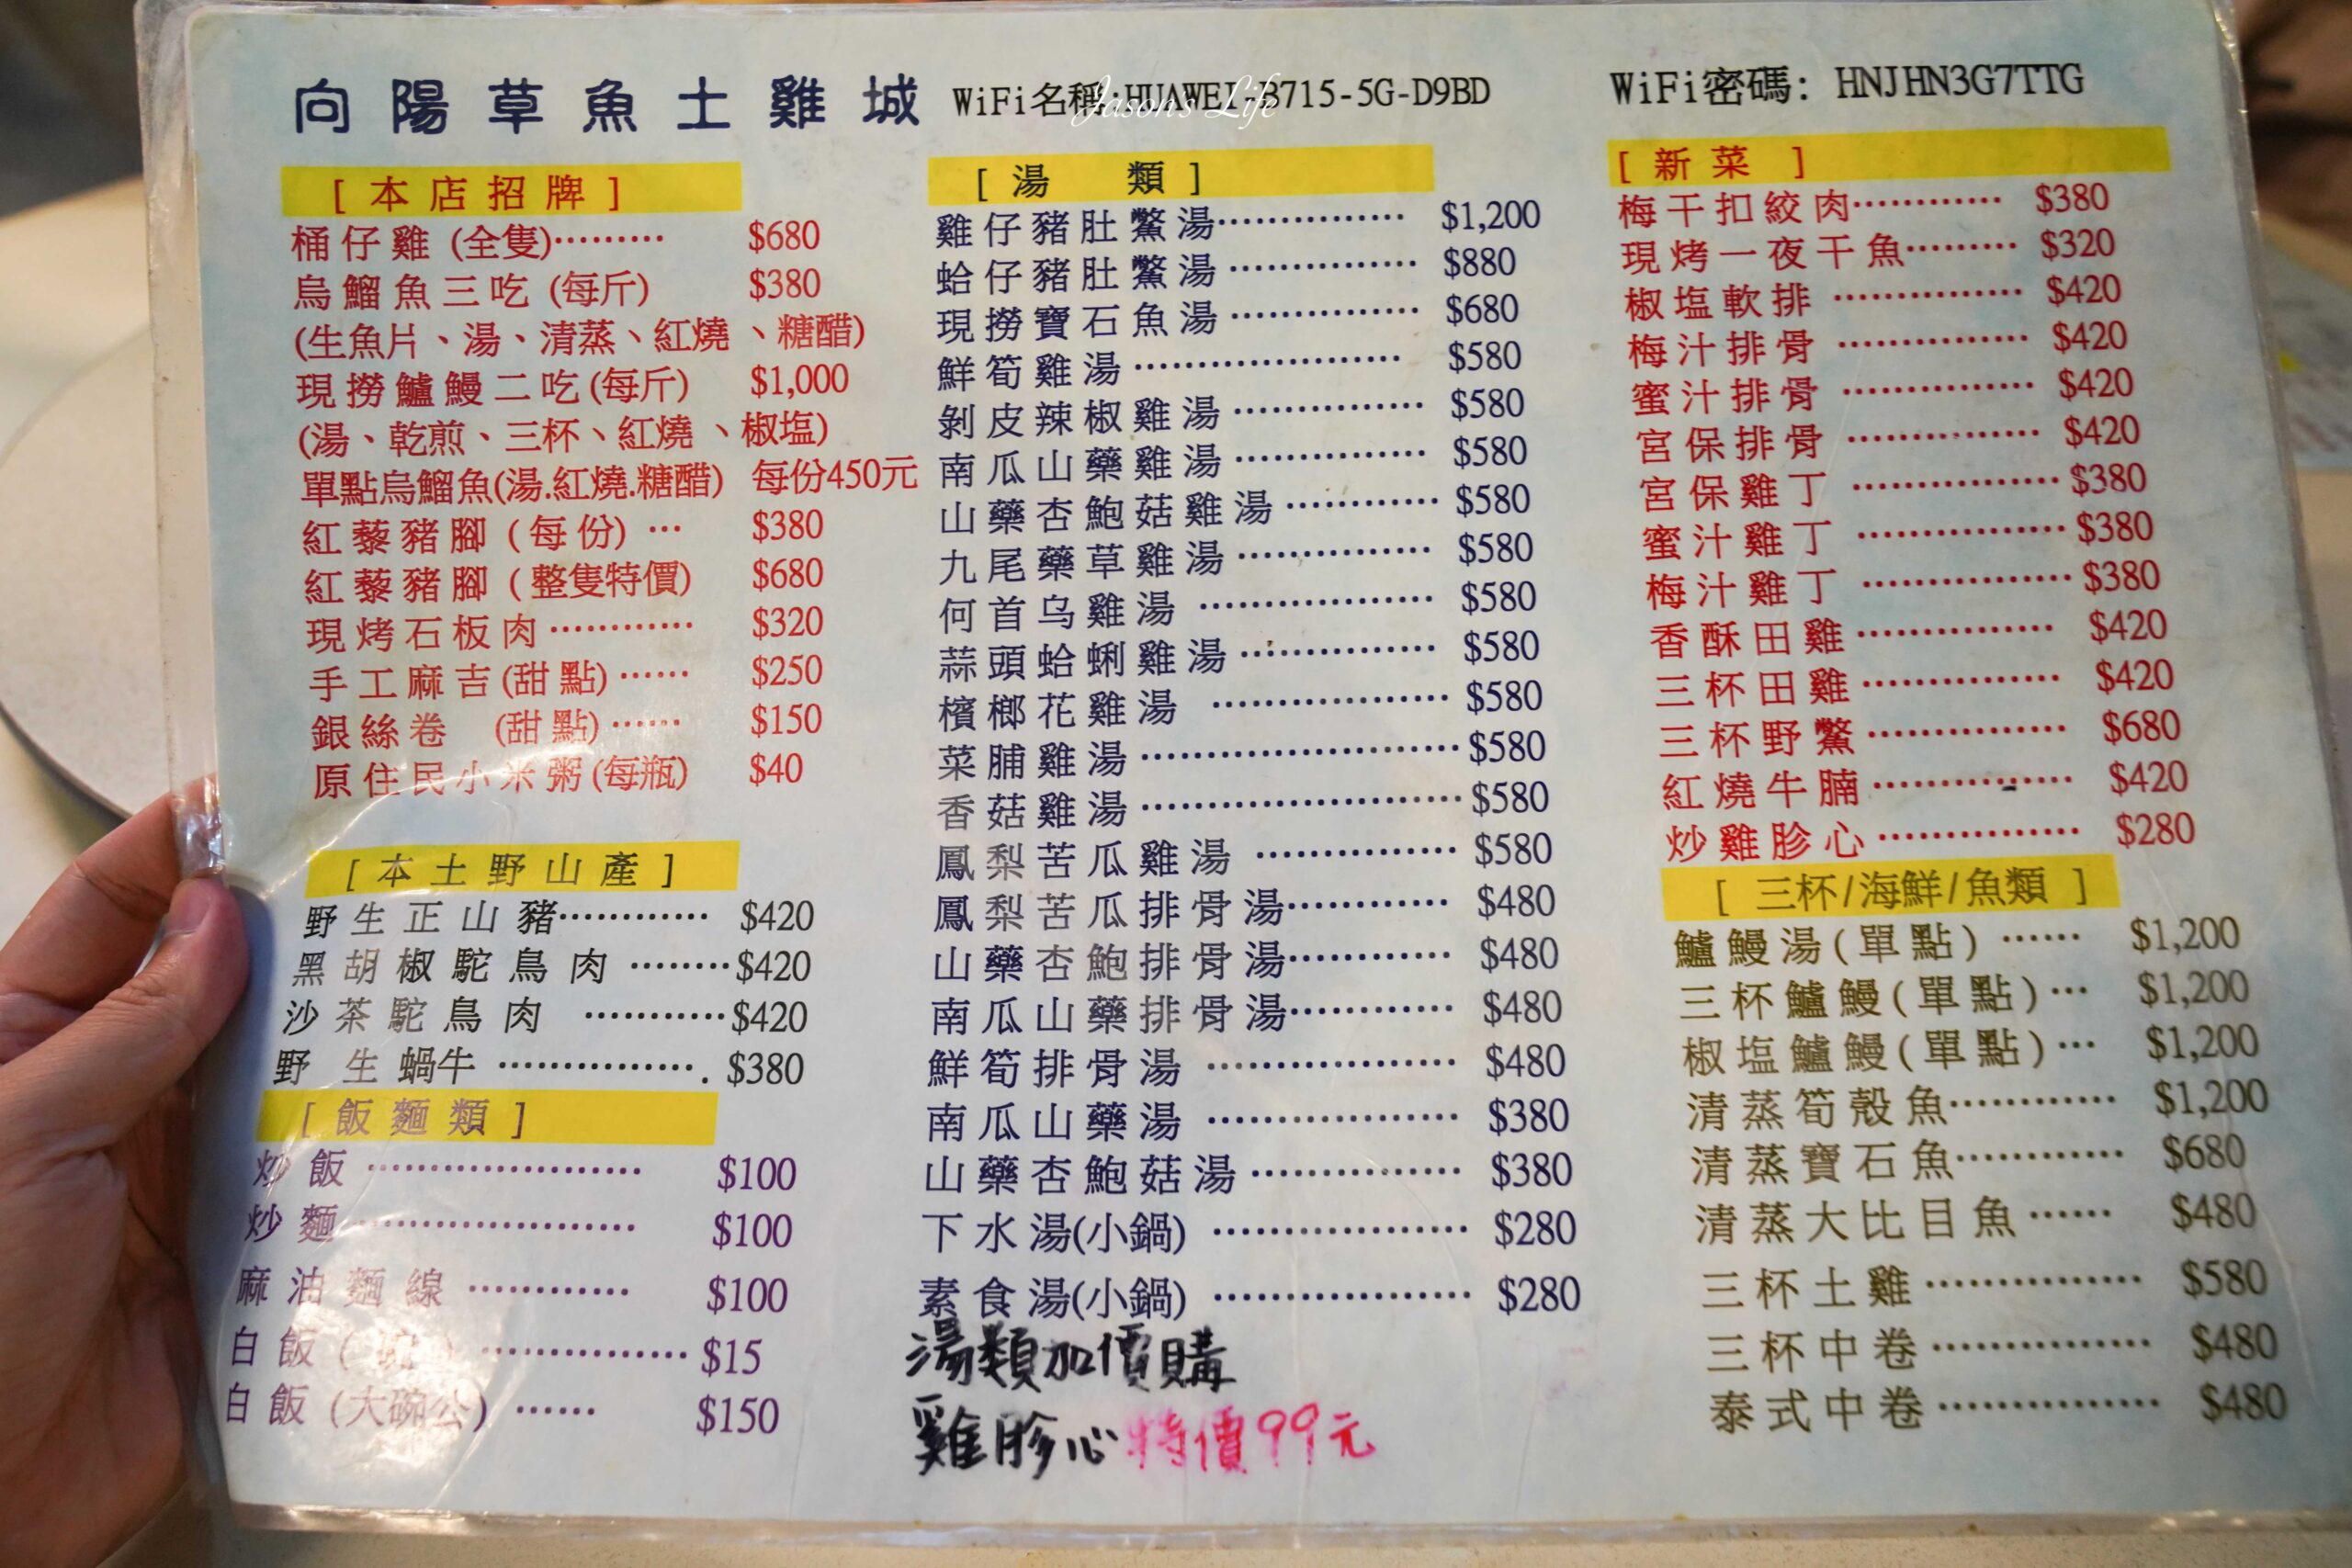 向陽草魚土雞城
WiFi名稱:HUAWEI-B715-5G-D9BD
WiFi密碼: HNJHN3G7TTG
Jason's Life
[本店招牌]
桶仔雞 (全隻)········· $680
烏鰡魚三吃 (每斤) $380
(生魚片、湯、清蒸、紅燒、糖醋)
現撈鱸鰻二吃(每斤) $1,000
(湯、乾煎、三杯、紅燒、椒塩)
單點烏鰡魚(湯.紅燒.糖醋) 每份450元
紅藜豬腳 (每份) ··· $380
紅藜豬腳 (整隻特價) $680
現烤石板肉············ $320
手工麻吉(甜點)······ $250
銀絲卷 (甜點)······ $150
原住民小米粥(每瓶) $40
[本土野山產]
野生正山豬············ $420
黑胡椒駝鳥肉········$420
沙茶駝鳥肉 ············$420
野生蝸牛 ················. $380
[飯麵類]
炒飯 ······················· $100
炒麵 ······················· $100
麻油麵線 ·············· $100
白飯( )················$15
白飯(大碗公) ······ $150
[湯 類]
雞仔豬肚鱉湯················ $1,200
蛤仔豬肚鱉湯················ $880
現撈寶石魚湯················ $680
鮮筍雞湯······················ $580
剝皮辣椒雞湯················ $580
南瓜山藥雞湯················ $580
山藥杏鮑菇雞湯············· $580
九尾藥草雞湯················ $580
何首乌雞湯 ··················· $580
蒜頭蛤蜊雞湯················ $580
檳榔花雞湯 ··················· $580
菜脯雞湯························$580
香菇雞湯························$580
鳳梨苦瓜雞湯 ················ $580
鳳梨苦瓜排骨湯············· $480
山藥杏鮑排骨湯············· $480
南瓜山藥排骨湯············· $480
鮮筍排骨湯 ··················· $480
南瓜山藥湯 ··················· $380
山藥杏鮑菇湯················ $380
下水湯(小鍋) ··················· $280
素食湯(小鍋) ··················· $280
湯類加價購
雞胗心特價99元
[新菜 ]
梅干扣絞肉············ $380
現烤一夜干魚········· $320
椒塩軟排 ··············· $420
梅汁排骨 ··············· $420
蜜汁排骨 ··············· $420
宮保排骨 ··············· $420
宮保雞丁 ················$380
蜜汁雞丁 ················$380
梅汁雞丁 ················$380
香酥田雞··············· $420
三杯田雞··············· $420
三杯野鱉··············· $680
紅燒牛腩··············· $420
炒雞胗心··············· $280
[ 三杯/海鮮/魚類 ]
鱸鰻湯(單點) ······ $1,200
三杯鱸鰻(單點)··· $1,200
椒塩鱸鰻(單點)··· $1,200
清蒸筍殼魚············ $1,200
清蒸寶石魚············ $680
清蒸大比目魚 ······ $480
三杯土雞················ $580
三杯中卷················ $480
泰式中卷················ $480